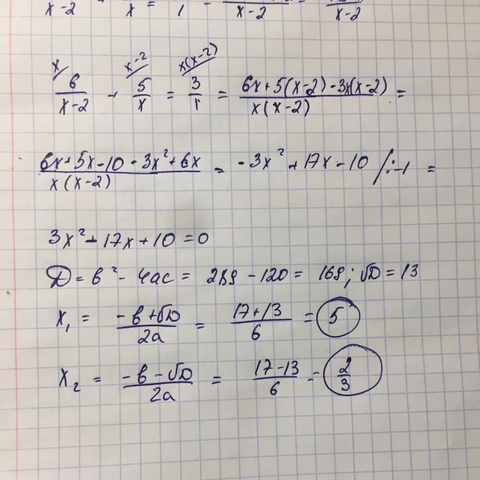 x-2 x = 1 - x-2 x-2
x x-2 x(x-2)
6/(x-2) + 5/x = 3/1 = (6x+5(x-2)-3x(x-2))/(x(x-2)) =
(6x+5x-10-3x²+6x)/(x(x-2)) = -3x²+17x-10 /:-1 =
3x²-17x+10=0
D=в²-4ac= 289-120= 169; √D=13
x₁ = (-в+√D)/2a = (17+13)/6 = 5
x₂ = (-в-√D)/2a = (17-13)/6 = 2/3